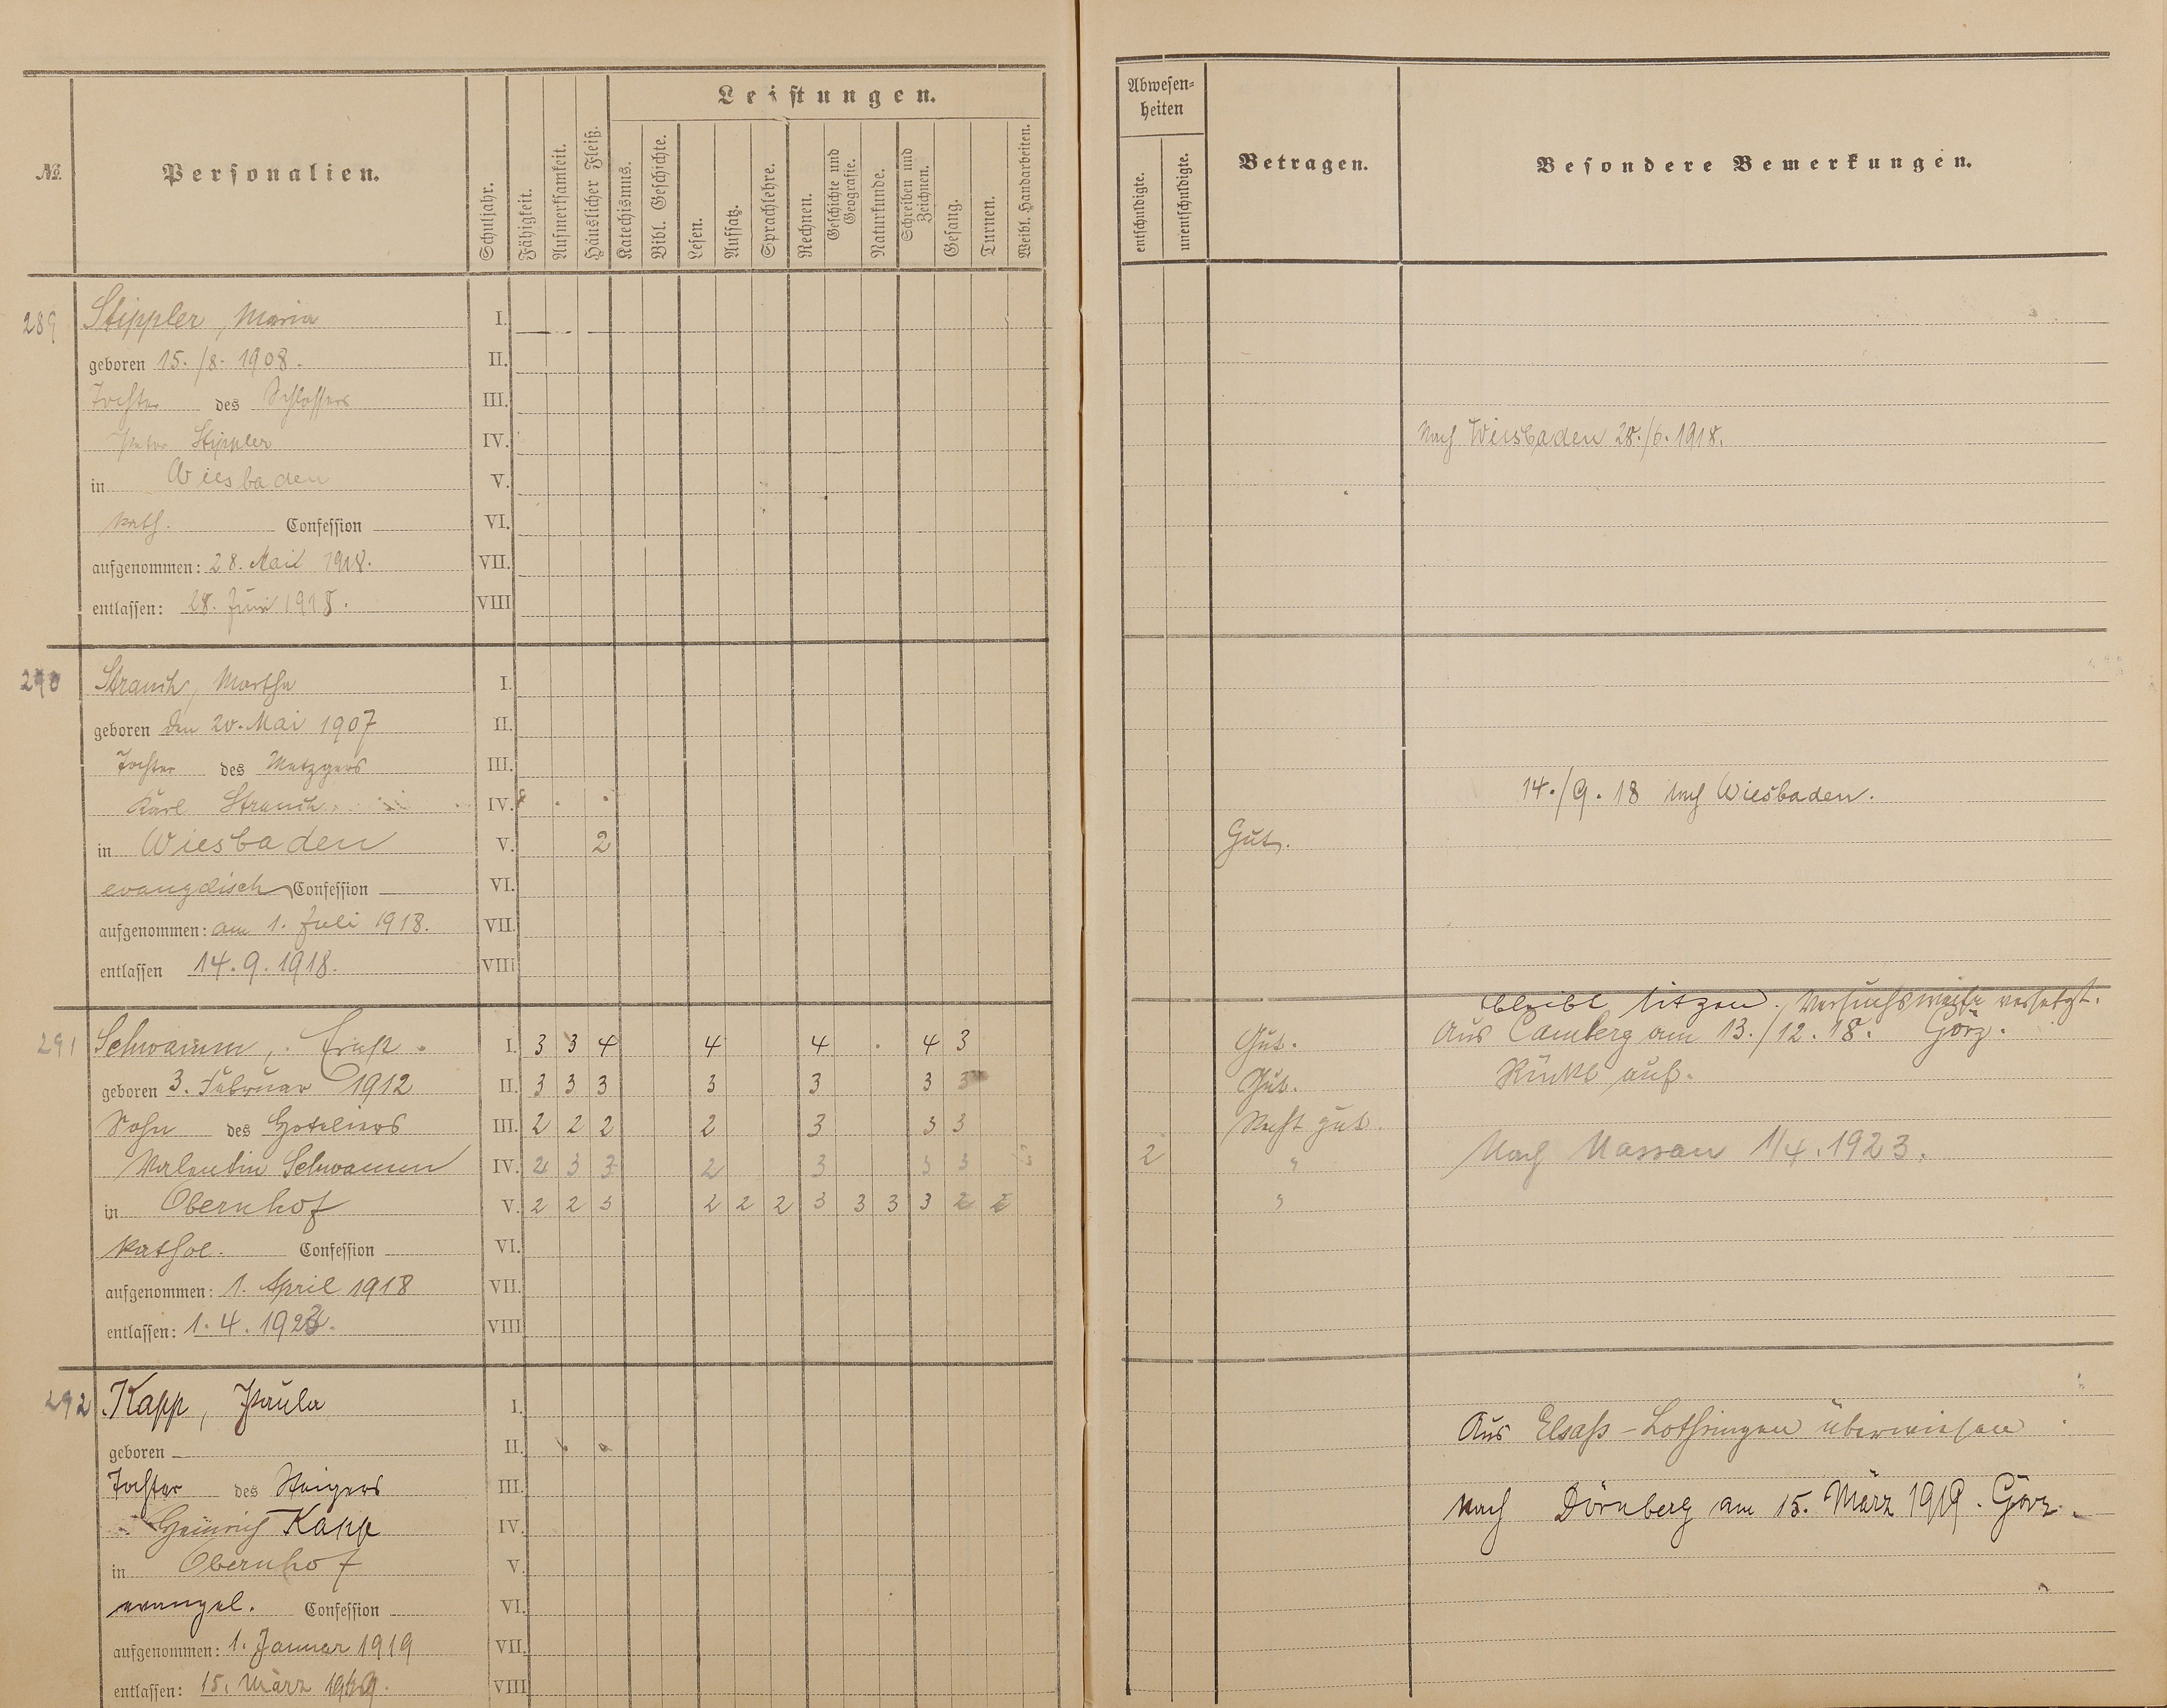 №.
Personalien.
Schuljahr.
Fähigkeit.
Aufmerksamkeit.
Häuslicher Fleiß.
Leistungen.
Katechismus.
Bibl. Geschichte.
Lesen.
Aufsatz.
Sprachlehre.
Rechnen.
Geschichte und
Geografie.
Naturkunde.
Schreiben und
Zeichnen.
Gesang.
Turnen.
Weibl. Handarbeiten.
Abwesen-
heiten
entschuldigte.
unentschuldigte.
Betragen.
Besondere Bemerkungen.
289 Stippler, Maria I.
geboren 15./8. 1908. II.
Tochter des Schlossers III.
Peter Stippler IV. Nach Wiesbaden 28./6. 1918.
in Wiesbaden V.
kath. Confession VI.
aufgenommen: 28. Mai 1918. VII.
entlassen: 28. Juni 1918. VIII
290 Strauch, Martha I.
geboren den 20. Mai 1907 II.
Tochter des Metzgers III.
Karl Strauch IV. 14./9. 18 nach Wiesbaden.
in Wiesbaden V. 2 Gut.
evangelisch Confession VI.
aufgenommen: am 1. Juli 1918. VII.
entlassen 14. 9. 1918. VIII
bleibt sitzen. Versuchsweise versetzt.
291 Schwamm, Ernst. I. 3 3 4 4 4 4 3 Gut. Aus Camberg am 13./12. 18. Görz.
geboren 3. Februar 1912 II. 3 3 3 3 3 3 3 Gut. Rückt auf.
Sohn des Hoteliers III. 2 2 2 2 3 3 3 Recht gut.
Valentin Schwamm IV. 2 3 3 2 3 3 3 2 " Nach Nassau 1/4. 1923.
in Obernhof V. 2 2 3 2 2 2 3 3 3 3 2 2 "
kathol. Confession VI.
aufgenommen: 1. April 1918 VII.
entlassen: 1. 4. 1923. VIII
292 Kapp, Paula I. Aus Elsaß-Lothringen überwiesen
geboren II.
Tochter des Steigers III.
Heinrich Kapp IV. Nach Dörnberg am 15. März 1919. Görz.
in Obernhof V.
evangel. Confession VI.
aufgenommen: 1. Januar 1919 VII.
entlassen: 15. März 1919. VIII